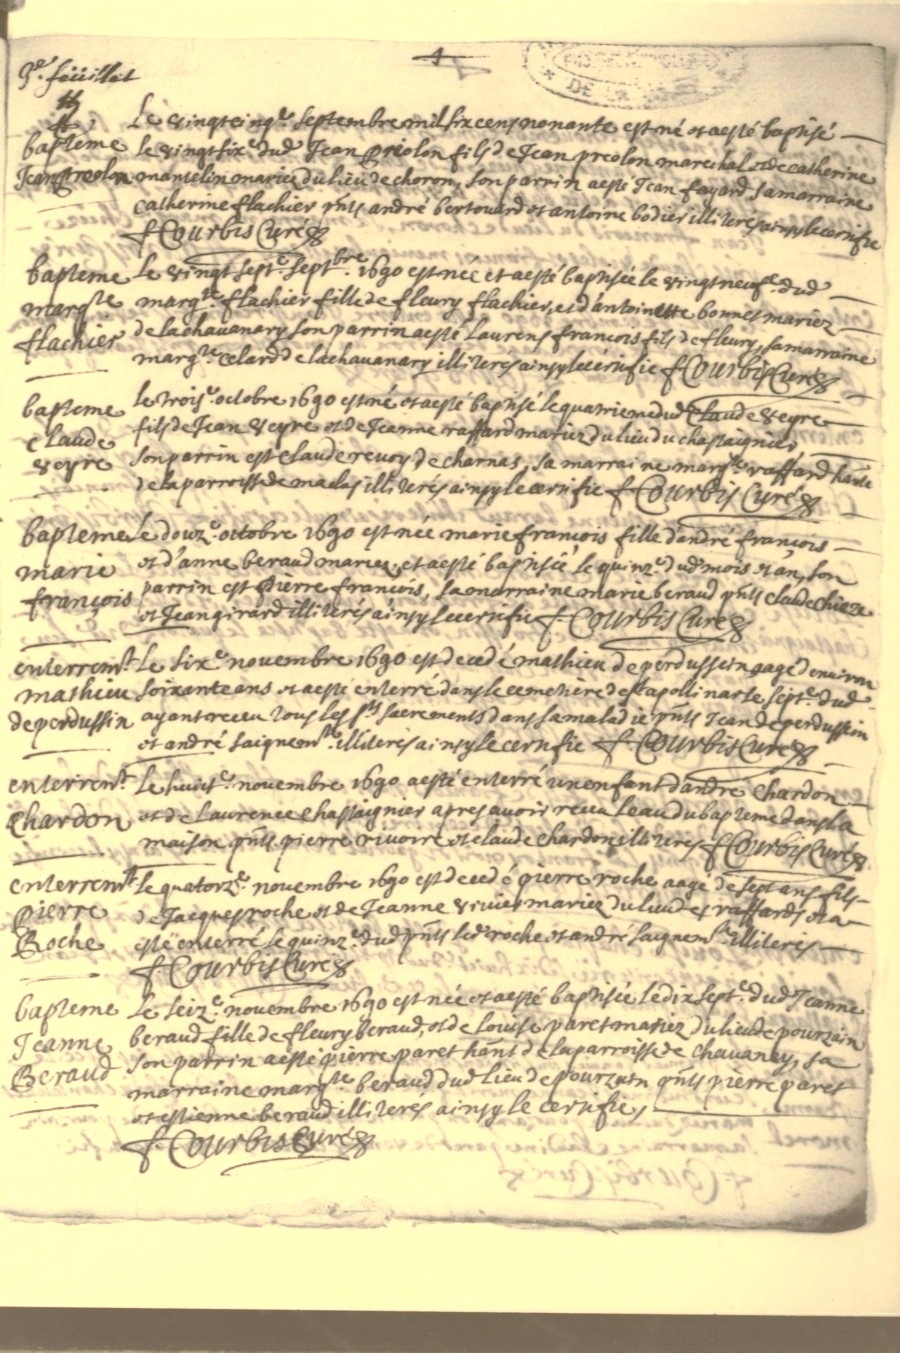 3e. feüillet
4
Le vingtcinqe. septembre mil six cens nonante est né et aesté baptisé
bapteme le vingt sixe. dud Jean Preolon fils de Jean preolon marechal et de catherine
Jean Preolon mantelin mariez du lieu de choron, son parrin aesté Jean fayard sa marraine
catherine flachier pnts andré bertouard et antoine bodier illiterés ainsy le certifie
f Courbis Curé
bapteme le vingt septe. septbre. 1690 est née et aesté baptisée le vingt neufe. dud
margte margte. flachier fille de fleury flachier, et d'antoinette bonnet mariez
flachier de lachavanary son parrin aesté Laurens francois fils de fleury, sa marraine
margte. celard de lachavanary illiterés ainsy le certifie f Courbis Curé
bapteme le troise. octobre 1690 est né et aesté baptisé le quatrieme dud Claude veyre
claude fils de Jean veyre et de Jeanne raffard mariez du lieu du chastaignier
veyre son parrin est claude revoy de charnas, sa marraine margte raffard hante
de la parroisse de maclas illiterés ainsy le certifie f Courbis Curé
bapteme Le douze. octobre 1690 est née marie francois fille d'andré francois
marie et d'anne beraud mariez, et aesté baptisée le quinze. dud mois et an, son
françois parrin est Pierre francois, sa marraine marie beraud pnts claude chieze
et Jean girard illiterés ainsy le certifie f Courbis Curé
enterremt. Le sixe. novembre 1690 est decedé mathieu deperdussin aagé denviron
mathieu soixante ans et aesté enterré dans le cemetiere de st apollinar le septe. dud
deperdussin ayant receu tous les sts sacrements dans sa maladie pnts Jean deperdussin
et andré saignemte. illiterés ainsy le certifie f. Courbis Curé
enterremt. Le huite. novembre 1690 aesté enterré un enfant d'andré chardon
chardon et de Laurence chastaignier apres avoir receu leau du bapteme dans la
maison pnts pierre rivoire et claude chardon illiterés f Courbis Curé
enterremt. le quatorze. novembre 1690 est decedé pierre roche aagé de sept ans fils
pierre de Jacques roche et de Jeanne vivier mariez du lieu des raffards et a
Roche esté enterré le quinze. dud pnts led. roche et andré saignemte. illiterés
f. Courbis Curé
bapteme Le seize. novembre 1690 est née et aesté baptisée le dix septe. dud Jeanne
Jeanne beraud fille de fleury beraud, et de Louise paret mariez du lieu de pourzuin
Beraud son parrin aesté pierre paret hant de la parroisse de chavanay, sa
marraine margte. beraud dud lieu de pourzuin pnts pierre paret
et estienne beraud illiterés ainsy le certifie
f Courbis Curé